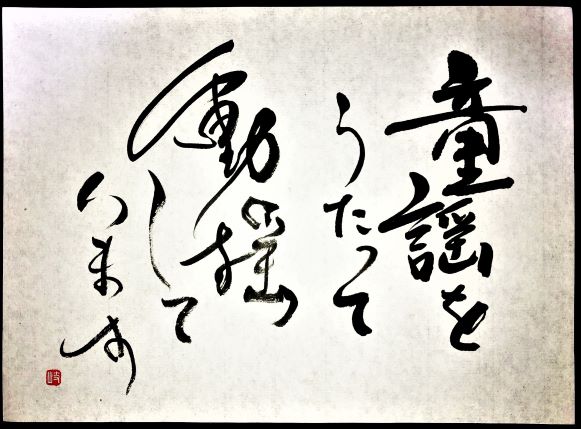 童謡を
うたって
動揺
して
います